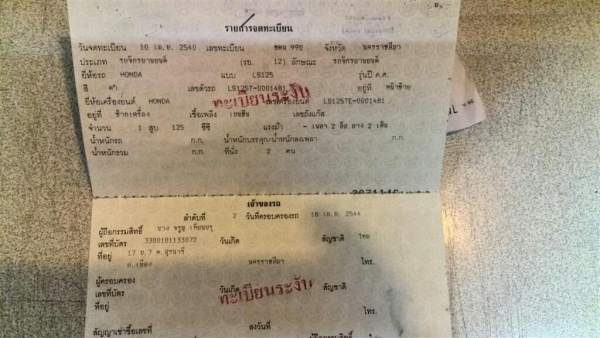 รายการจดทะเบียน
วันจดทะเบียน 10 เม.ย. 2540 เลขทะเบียน 990 จังหวัด นครราชสีมา
ประเภท รถจักรยานยนต์ (รย. 12) ลักษณะ รถจักรยานยนต์
ยี่ห้อรถ HONDA แบบ LS125 รุ่นปี ค.ศ.
สี ดำ เลขตัวรถ LS125T-0001481 อยู่ที่ หน้าซ้าย
ยี่ห้อเครื่องยนต์ HONDA เลขเครื่องยนต์ LS125TE-0001481
ทะเบียนระงับ
อยู่ที่ ซ้ายเครื่อง เชื้อเพลิง เบนซิน เลขถังแก๊ส
จำนวน 1 สูบ 125 ซีซี แรงม้า - เพลา 2 ล้อ ยาง 2 เส้น
น้ำหนักรถ ก.ก. น้ำหนักบรรทุก/น้ำหนักลงเพลา ก.ก.
น้ำหนักรวม ก.ก. ที่นั่ง 2 คน
เจ้าของรถ
ลำดับที่ 2 วันที่ครอบครองรถ 18 เม.ย. 2544
ผู้ถือกรรมสิทธิ์ นาง จรูญ
เลขที่บัตร 3300101133072 วันเกิด สัญชาติ ไทย
ที่อยู่ 17 ม.7 ต.สุรนารี
อ.เมือง นครราชสีมา โทร.
ผู้ครอบครอง
เลขที่บัตร วันเกิด สัญชาติ
ทะเบียนระงับ
ที่อยู่
โทร.
สัญญาเช่าซื้อเลขที่ ลงวันที่